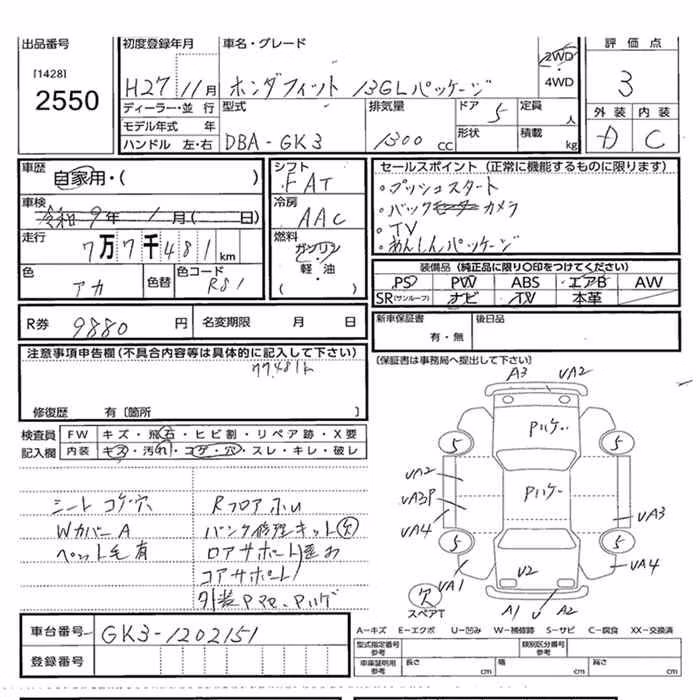 出品番号
[1428]
2550
初度登録年月 車名・グレード
H27 11月 ホンダフィット 13GLパッケージ
2WD・4WD
評価点
3
外装 内装
D C
ディーラー・並行
モデル年式 年
ハンドル 左・右
型式
DBA-GK3
排気量
1300cc
ドア 5
形状
定員 人
積載 kg
車歴
自家用・( )
車検
令和9年1月( 日)
走行
7万7千481km
色 アカ 色替 色コード R81
シフト
FAT
冷房
AAC
燃料
ガソリン
軽・油
( )
セールスポイント(正常に機能するものに限ります)
・プッシュスタート
・バックカメラ
・TV
・あんしんパッケージ
装備品(純正品に限り○印をつけてください)
PS PW ABS エアB AW
SR(サンルーフ) ナビ TV 本革
R券 9880円 名変期限 月 日
新車保証書 有・無 後日品
(保証書は事務局へ提出して下さい)
注意事項申告欄(不具合内容等は具体的に記入して下さい)
77,481k
修復歴 有〔箇所 〕
検査員記入欄
FW キズ・飛石・ヒビ割・リペア跡・X要
内装 キズ・汚れ・コゲ・穴・スレ・キレ・破レ
シート コゲ・穴
WカバーA
ペット毛有
Rフロア
パンク修理キット欠
ロアサポート
コアサポート
外装
A3 UA2
Pハゲ
5 5
UA2
Pハゲ
UA3P
UA4 UA3
5 5
UA1 UA4
U2
欠
スペアT
A1 U A2
車台番号 GK3-1202151
登録番号
A-キズ E-エクボ U-凹み W-補修跡 S-サビ C-腐食 XX-交換済
型式指定番号 参考 類別区分番号 参考
車庫証明用 参考 長さ cm 幅 cm 高さ cm